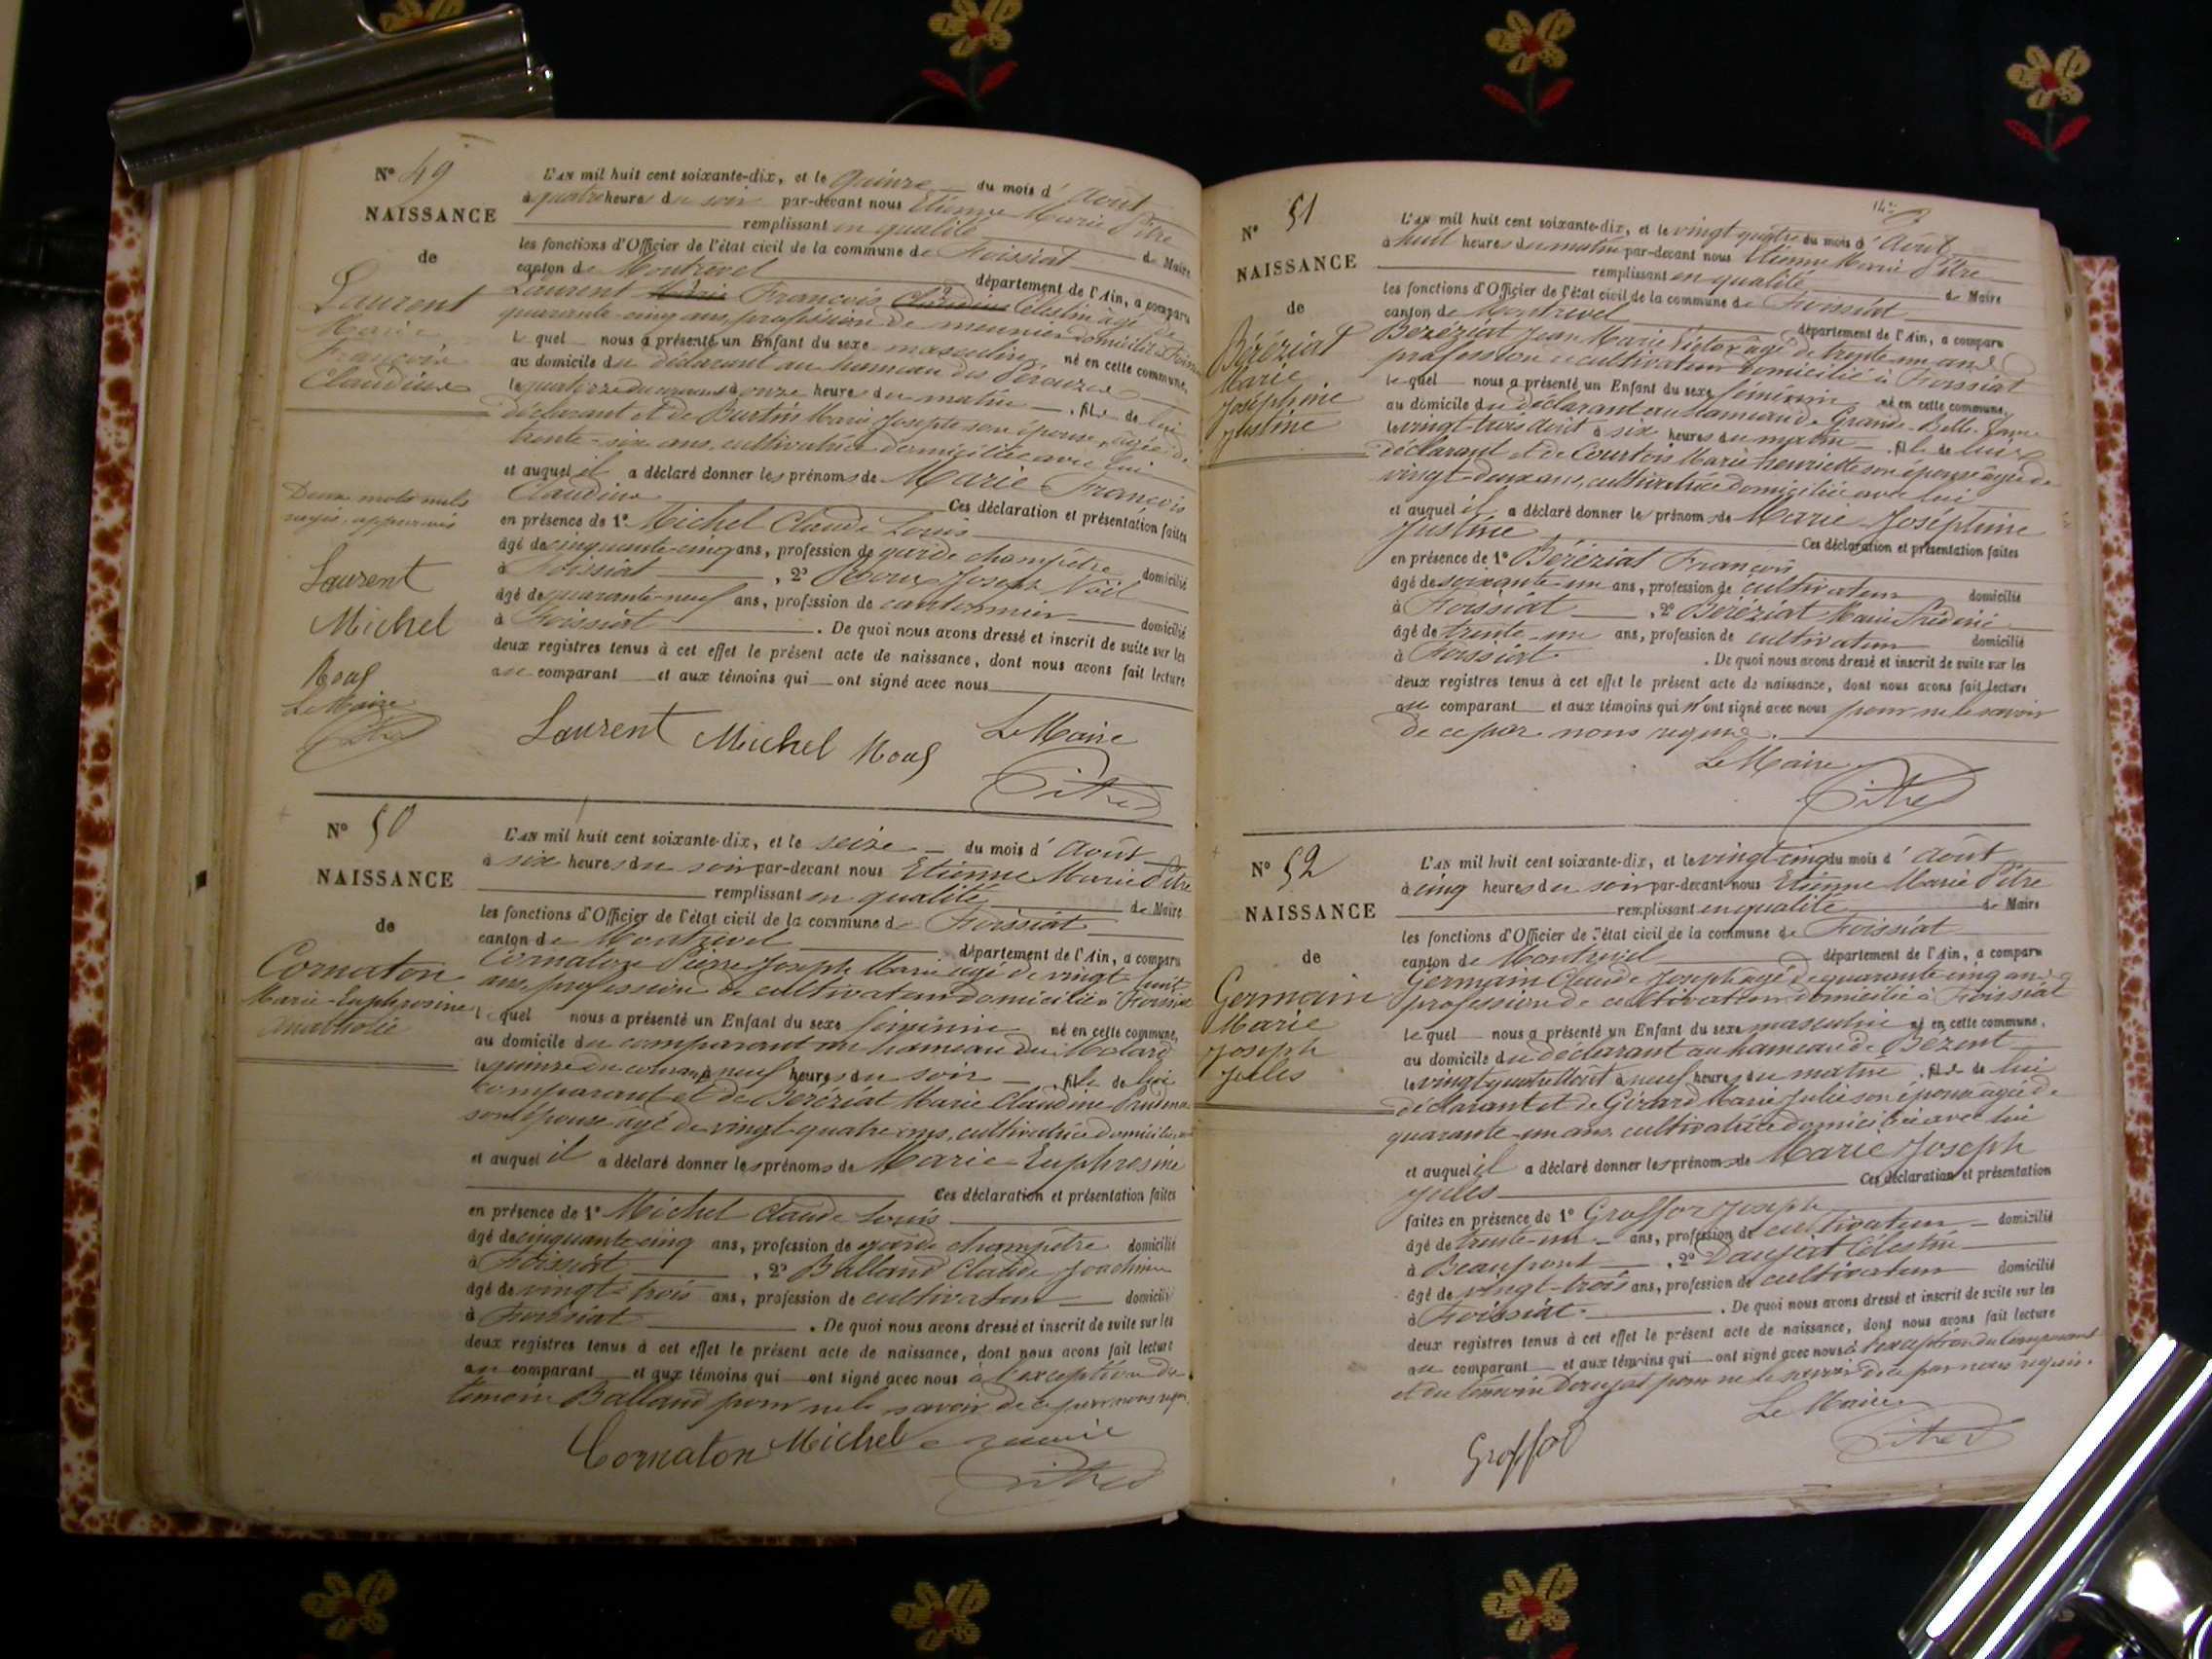 N° 49
NAISSANCE
de
Laurent
Marie
François
Claudius
Deux mots nuls
rayés, approuvés
Laurent
Michel
Le Maire
Pitre
L'AN mil huit cent soixante-dix, et le quinze du mois d' Août
à quatre heures du soir par-devant nous Etienne Marie Pitre
remplissant en qualité de Maire
les fonctions d'Officier de l'état civil de la commune de Foissiat
canton de Montrevel département de l'Ain, a comparu
Laurent Marie François Claudius Célestin âgé de
quarante-cinq ans, profession de meunier domicilié à Foissiat
le quel nous a présenté un Enfant du sexe masculin né en cette commune,
au domicile du déclarant au hameau des
le quatorze du courant à onze heures du matin, fils de lui
déclarant et de Burtin Marie Josephe son épouse, âgée de
trente-six ans, cultivatrice domiciliée avec lui
et auquel il a déclaré donner les prénoms de Marie François
Claudius Ces déclaration et présentation faites
en présence de 1° Michel Claude Louis
âgé de cinquante-cinq ans, profession de garde champêtre domicilié
à Foissiat, 2° Joseph Noël
âgé de quarante-neuf ans, profession de cantonnier domicilié
à Foissiat. De quoi nous avons dressé et inscrit de suite sur les
deux registres tenus à cet effet le présent acte de naissance, dont nous avons fait lecture
au comparant et aux témoins qui ont signé avec nous
Laurent Michel Le Maire
Pitre
N° 50
NAISSANCE
de
Cornaton
Marie-Euphrosine
L'AN mil huit cent soixante-dix, et le seize du mois d' Août
à six heures du soir par-devant nous Etienne Marie Pitre
remplissant en qualité de Maire
les fonctions d'Officier de l'état civil de la commune de Foissiat
canton de Montrevel département de l'Ain, a comparu
Cornaton Pierre Joseph Marie âgé de vingt-huit
ans, profession de cultivateur domicilié à Foissiat
le quel nous a présenté un Enfant du sexe féminin né en cette commune,
au domicile du comparant au hameau du Molard
le quinze du courant à neuf heures du soir, fille de lui
comparant et de Béréziat Marie Claudine
son épouse âgé de vingt-quatre ans, cultivatrice domiciliée
et auquel il a déclaré donner les prénoms de Marie-Euphrosine
Ces déclaration et présentation faites
en présence de 1° Michel Claude Louis
âgé de cinquante-cinq ans, profession de garde champêtre domicilié
à Foissiat, 2° Balland Claude Joachim
âgé de vingt-trois ans, profession de cultivateur domicilié
à Foissiat. De quoi nous avons dressé et inscrit de suite sur les
deux registres tenus à cet effet le présent acte de naissance, dont nous avons fait lecture
au comparant et aux témoins qui ont signé avec nous à l'exception du
témoin Balland pour ne le savoir de ce par nous requis
Cornaton Michel
Pitre
N° 51
NAISSANCE
de
Béréziat
Marie
Joséphine
Justine
L'AN mil huit cent soixante-dix, et le vingt-quatre du mois d' Août
à huit heures du matin par-devant nous Etienne Marie Pitre
remplissant en qualité de Maire
les fonctions d'Officier de l'état civil de la commune de Foissiat
canton de Montrevel département de l'Ain, a comparu
Béréziat Jean Marie Victor âgé de trente-un ans
profession de cultivateur domicilié à Foissiat
le quel nous a présenté un Enfant du sexe féminin né en cette commune,
au domicile du déclarant au hameau de Grande-Belle
le vingt-trois Août à six heures du matin, fille de lui
déclarant et de Courtois Marie henriette son épouse âgée de
vingt-deux ans, cultivatrice domiciliée avec lui
et auquel il a déclaré donner les prénoms de Marie Joséphine
Justine Ces déclaration et présentation faites
en présence de 1° Béréziat François
âgé de soixante-un ans, profession de cultivateur domicilié
à Foissiat, 2° Béréziat Marie Frédéric
âgé de trente-un ans, profession de cultivateur domicilié
à Foissiat. De quoi nous avons dressé et inscrit de suite sur les
deux registres tenus à cet effet le présent acte de naissance, dont nous avons fait lecture
au comparant et aux témoins qui n'ont signé avec nous pour ne le savoir
de ce par nous requis.
Le Maire
Pitre
N° 52
NAISSANCE
de
Germain
Marie
Joseph
Jules
L'AN mil huit cent soixante-dix, et le vingt-cinq du mois d' Août
à cinq heures du soir par-devant nous Etienne Marie Pitre
remplissant en qualité de Maire
les fonctions d'Officier de l'état civil de la commune de Foissiat
canton de Montrevel département de l'Ain, a comparu
Germain Claude Joseph âgé de quarante-cinq ans
profession de cultivateur domicilié à Foissiat
le quel nous a présenté un Enfant du sexe masculin né en cette commune,
au domicile du déclarant au hameau de Bezent
le vingt-quatre Août à neuf heures du matin, fils de lui
déclarant et de Girard Marie Julie son épouse âgée de
quarante-un ans, cultivatrice domiciliée avec lui
et auquel il a déclaré donner les prénoms de Marie Joseph
Jules Ces déclaration et présentation
faites en présence de 1° Groffoz Joseph
âgé de trente-un ans, profession de cultivateur domicilié
à Beaupont, 2° Daujat Célestin
âgé de vingt-trois ans, profession de cultivateur domicilié
à Foissiat. De quoi nous avons dressé et inscrit de suite sur les
deux registres tenus à cet effet le présent acte de naissance, dont nous avons fait lecture
au comparant et aux témoins qui ont signé avec nous à l'exception du Comparant
et du témoin Daujat pour ne le savoir de ce par nous requis.
Le Maire
Groffoz Pitre